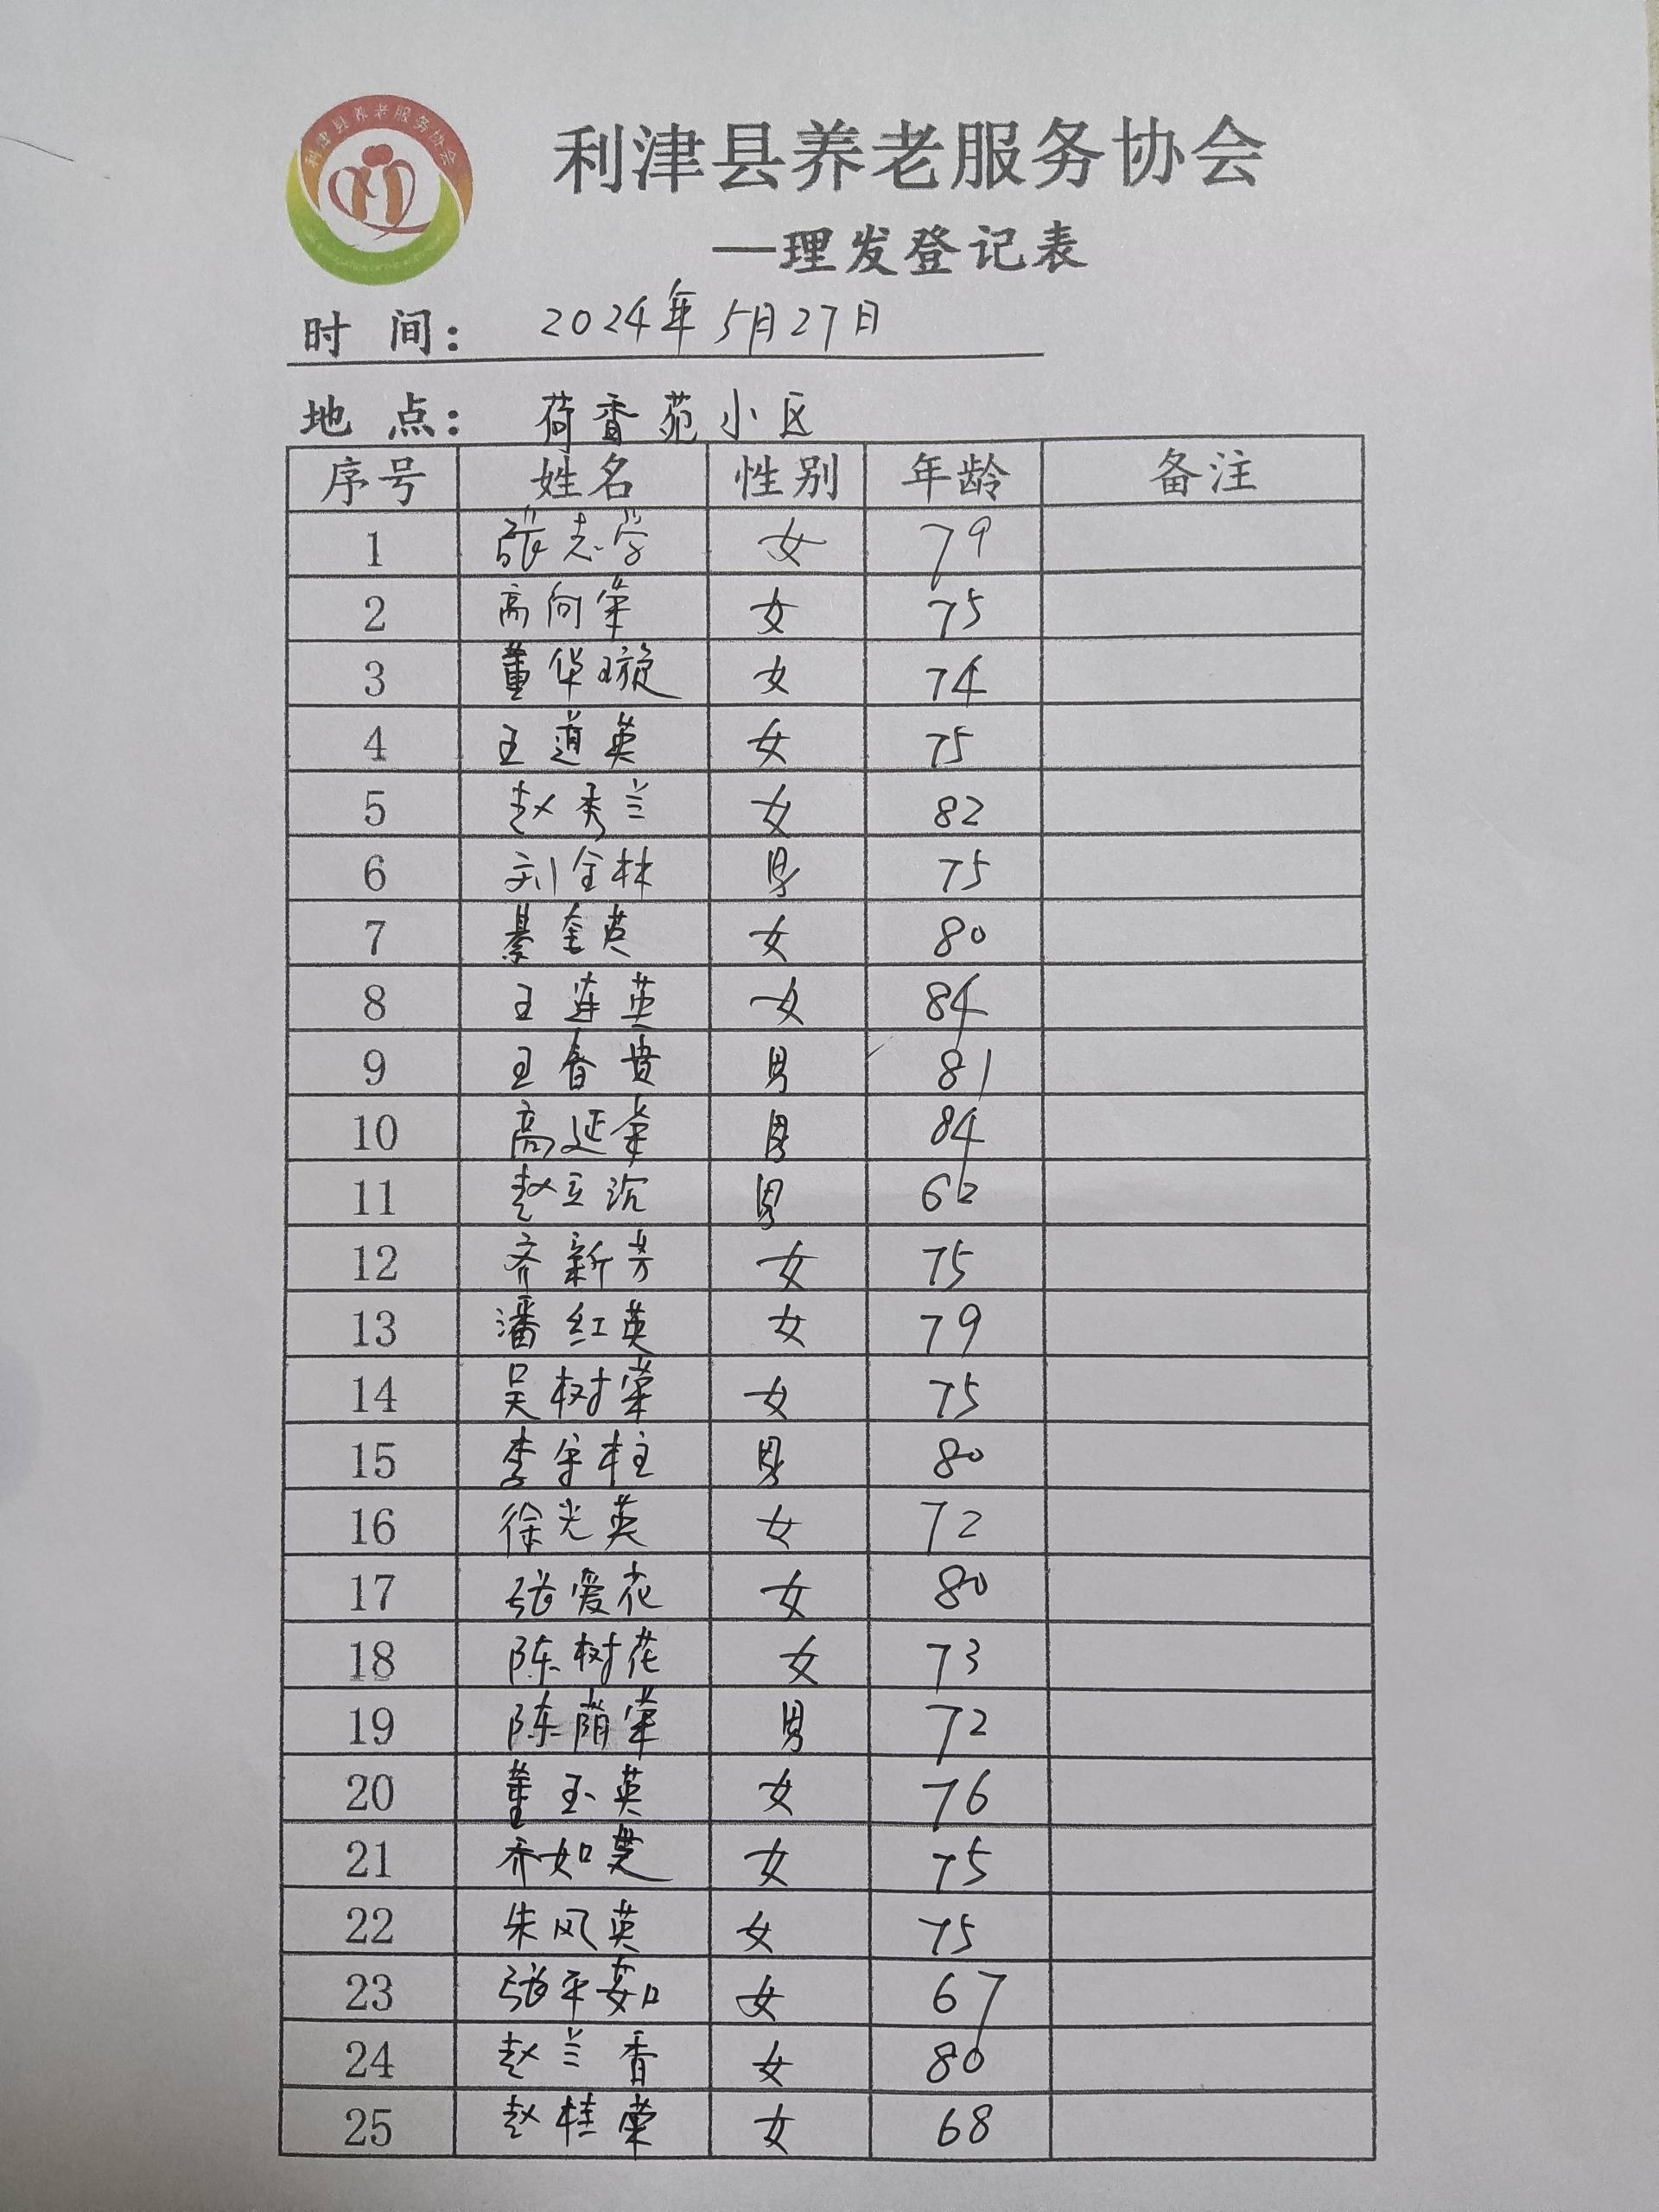 利津县养老服务协会
利津县养老服务协会
—理发登记表
时 间： 2024年5月27日
地 点： 荷香苑小区
序号 姓名 性别 年龄 备注
1 张志学 女 79
2 高向荣 女 75
3 董华璇 女 74
4 王道英 女 75
5 赵秀兰 女 82
6 刘全林 男 75
7 綦金英 女 80
8 王莲英 女 84
9 王春贵 男 81
10 高延荣 男 84
11 赵立沉 男 62
12 齐新芳 女 75
13 潘红英 女 79
14 吴树荣 女 75
15 李守柱 男 80
16 徐光英 女 72
17 张爱花 女 80
18 陈树花 女 73
19 陈荫荣 男 72
20 董玉英 女 76
21 乔如 女 75
22 朱风英 女 75
23 张平茹 女 67
24 赵兰香 女 80
25 赵桂荣 女 68